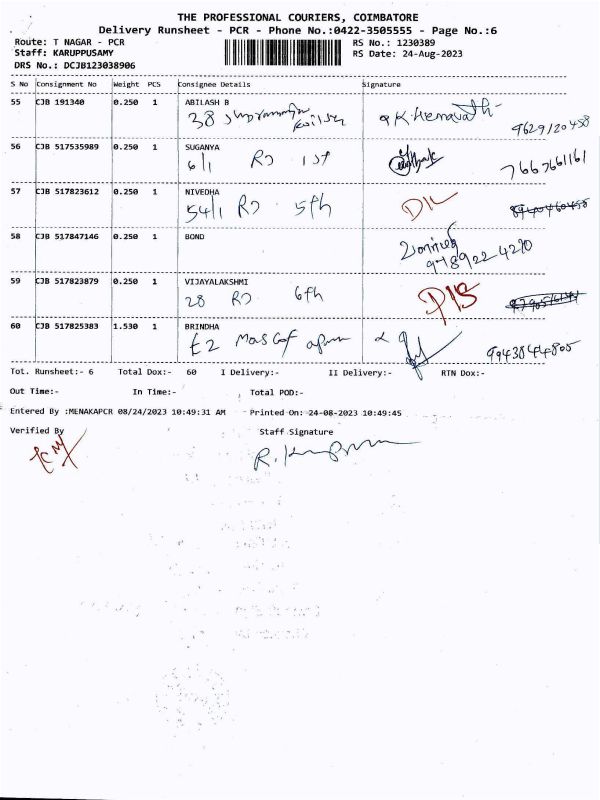 THE PROFESSIONAL COURIERS, COIMBATORE
Delivery Runsheet - PCR - Phone No.:0422-3505555 - Page No.:6
Route: T NAGAR - PCR RS No.: 1230389
Staff: KARUPPUSAMY RS Date: 24-Aug-2023
DRS No.: DCJB123038906
S No Consignment No Weight PCS Consignee Details Signature
55 CJB 191340 0.250 1 ABILASH B
38
9629120458
56 CJB 517535989 0.250 1 SUGANYA
6/1 RD 1st 7667661161
57 CJB 517823612 0.250 1 NIVEDHA
54/1 RD 5th D/L
58 CJB 517847146 0.250 1 BOND
978922 4270
59 CJB 517823879 0.250 1 VIJAYALAKSHMI
28 RD 6th
60 CJB 517825383 1.530 1 BRINDHA
E2 9943844805
Tot. Runsheet:- 6 Total Dox:- 60 I Delivery:- II Delivery:- RTN Dox:-
Out Time:- In Time:- Total POD:-
Entered By :MENAKAPCR 08/24/2023 10:49:31 AM Printed On: 24-08-2023 10:49:45
Verified By Staff Signature